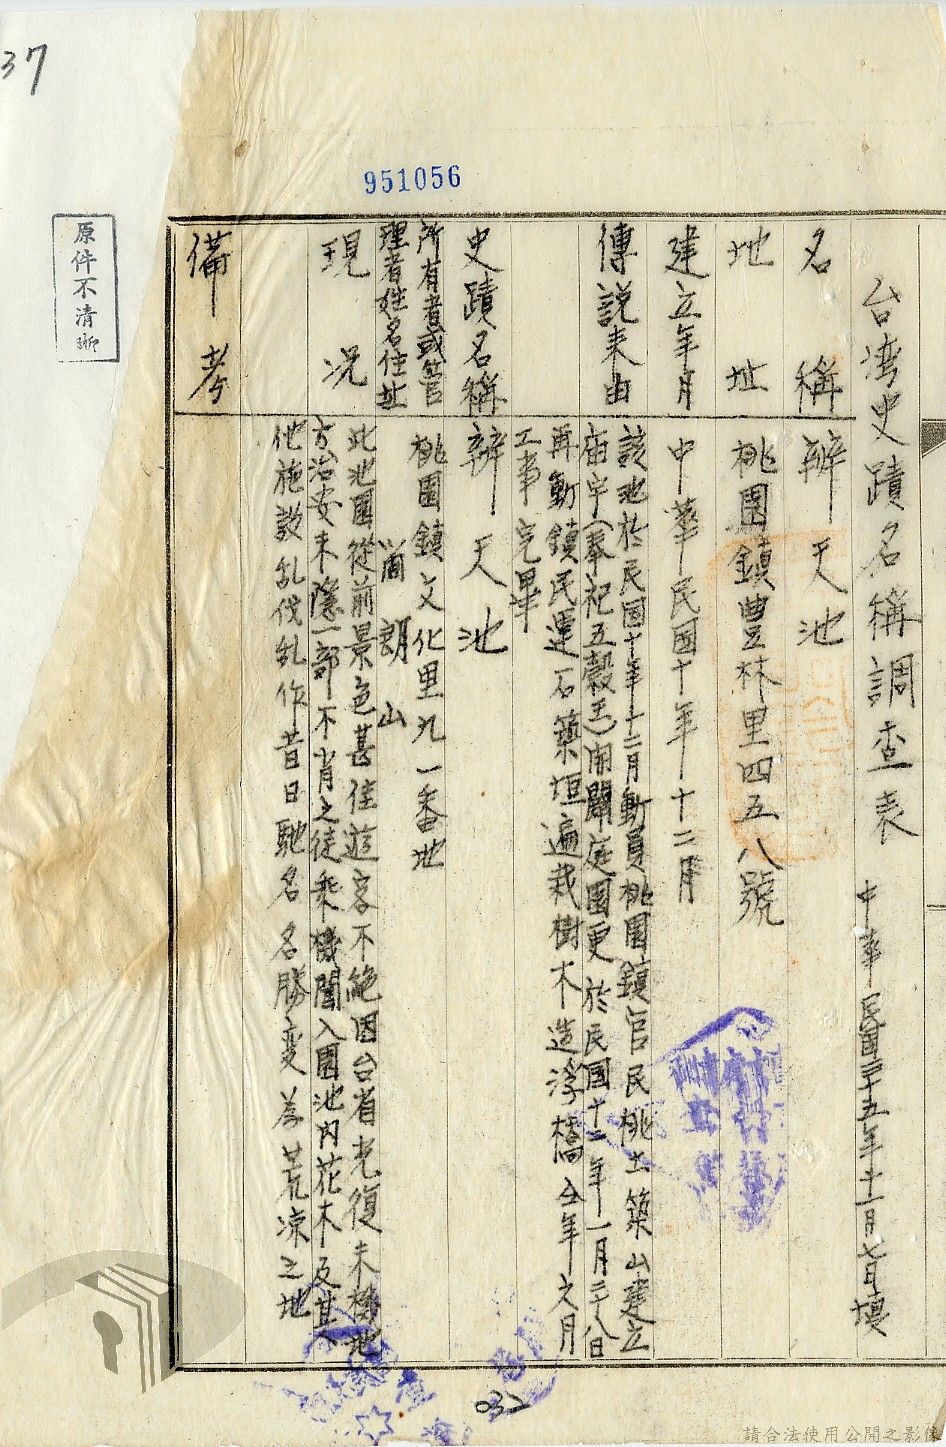 37
951056
原件不清晰
台湾史蹟名稱調查表 中華民國三十五年十一月七日填
名稱 辨天池
地址 桃園鎮豊林里四五八號
建立年月 中華民國十年十二月
傳説来由 該池於民國十年十二月動員桃園鎮官民桃土築山建立
庙宇(奉祀五穀王)開闢庭園更於民國十二年一月二十八日
再動鎮民運石築垣遍栽樹木造浮橋仝年六月
工事完畢
史蹟名稱 辨天池
所有者或管理者姓名住址 桃園鎮文化里九一番地
簡朗山
現況 此池園從前景色甚佳遊客不絶因台省光復未幾地
方治安未隱一部不肖之徒乘機闖入園池内花木及其
他施設乱伐乱作昔日馳名名勝変為荒凉之地
備考
032
請合法使用公開之影像